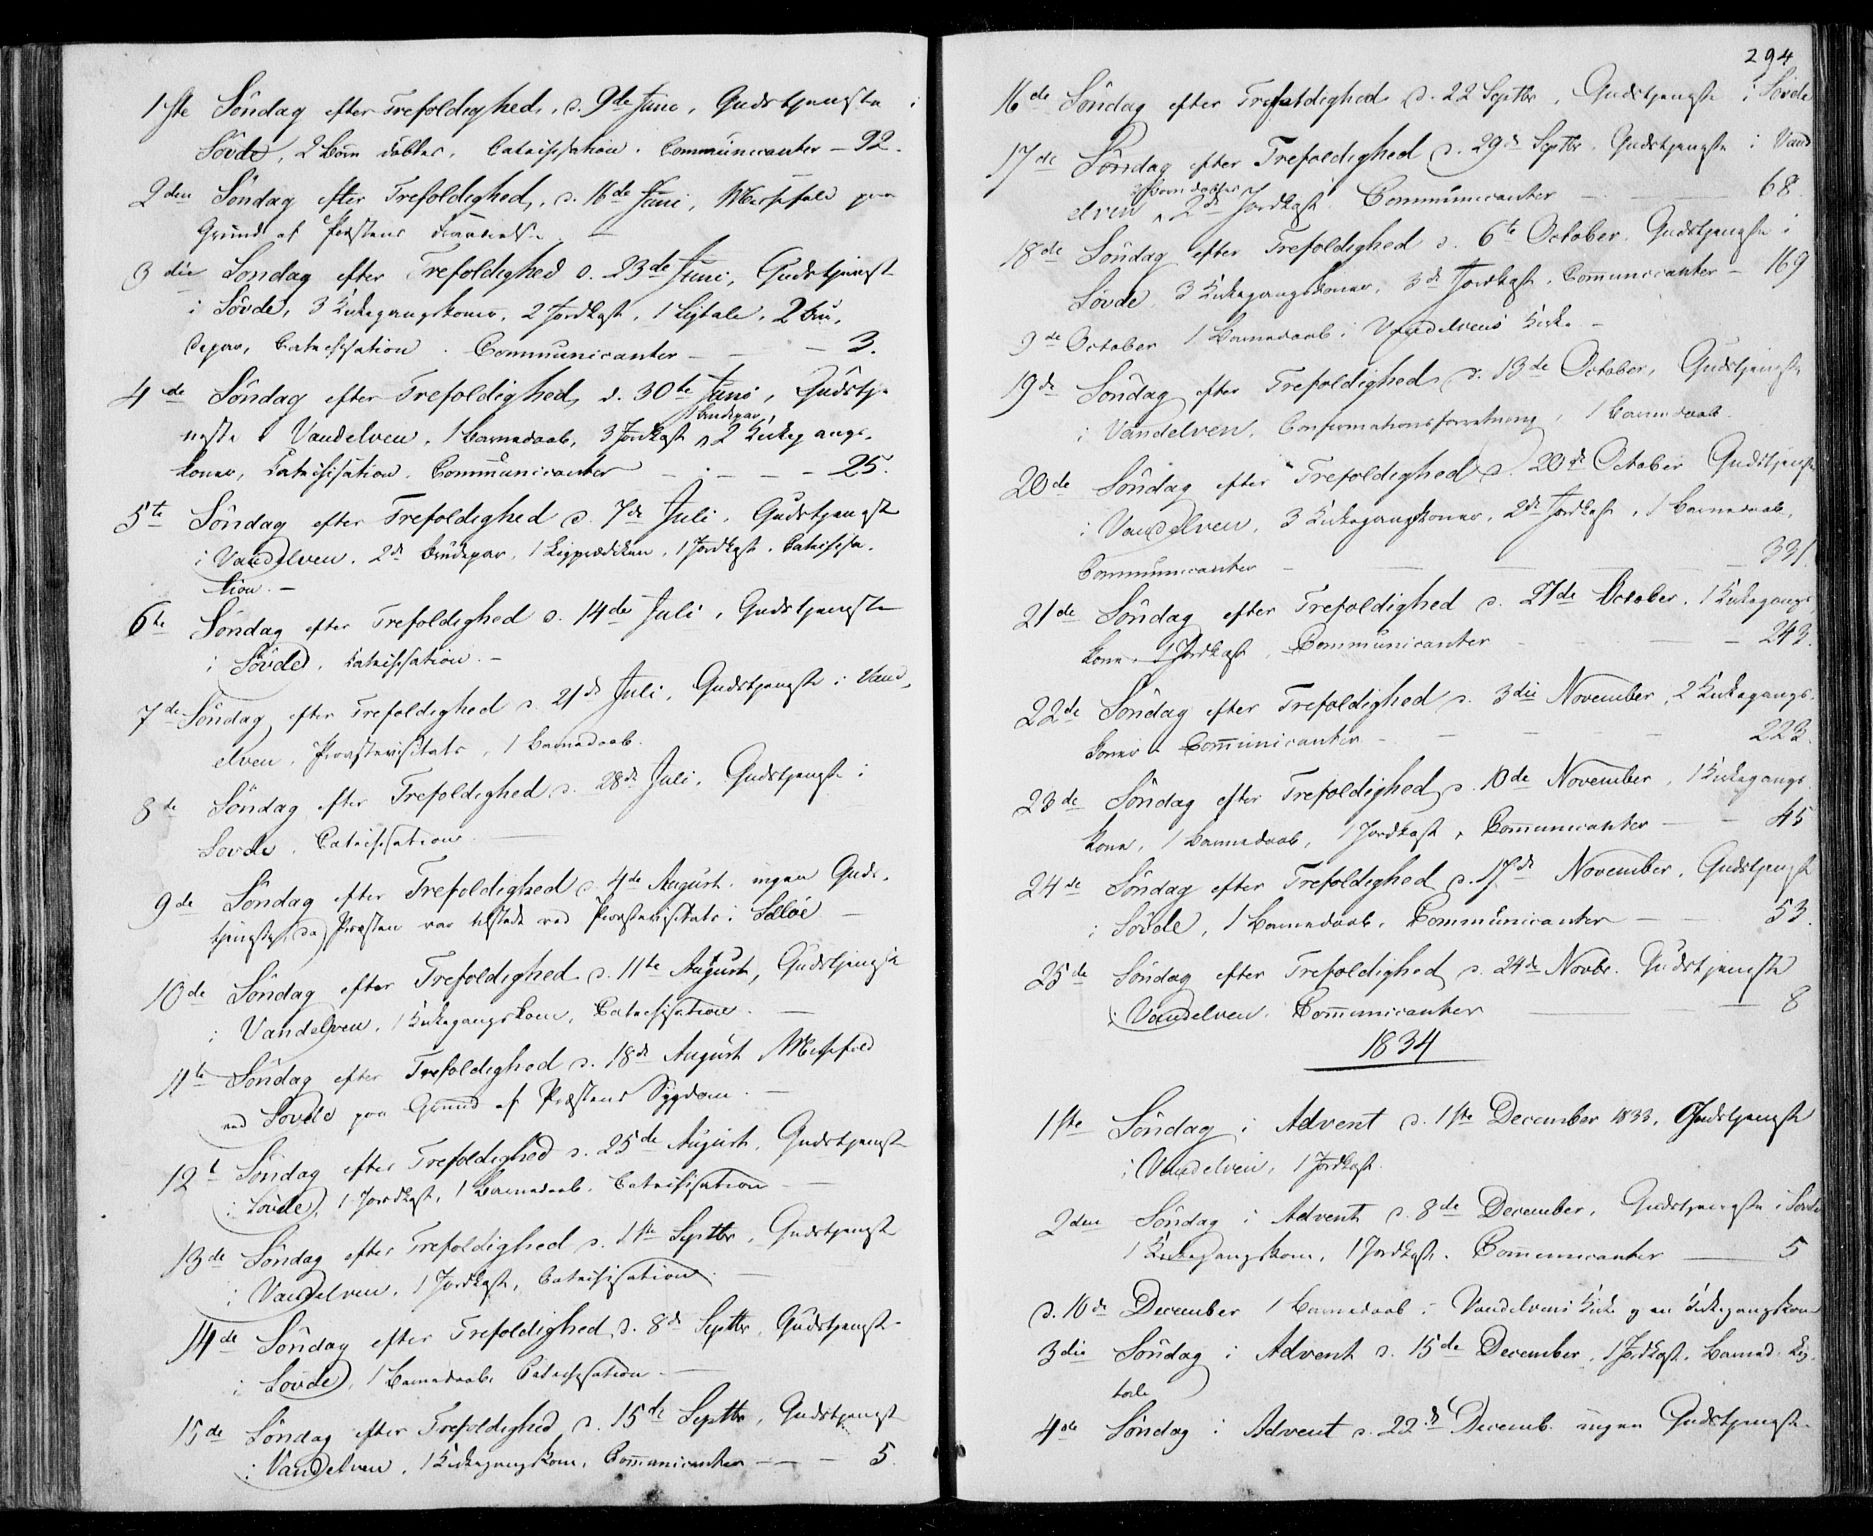 1ste Søndag efter Trefoldighed, d. 9de Juni, Gudstjeneste i
Søvde, 2 Børn døbtes, Catechisation. Communicanter – 92.
2den Søndag efter Trefoldighed, d. 16de Juni, Messefald paa
Grund af Præstens
3die Søndag efter Trefoldighed d. 23de Juni, Gudstjenest
i Søvde, 3 Kirkegangskoner, 2 Jordkast, 1 Ligtale, 2 Bru,
depar, Catechisation. Communicanter – – 3.
4de Søndag efter Trefoldighed, d. 30te Juni, Gudstje
1 Brudepar,
neste i Vandelven, 1 Barnedaab, 3 Jordkast, 2 Kirkegangs,
koner, Catechisation, Communicanter – – – 25.
5te Søndag efter Trefoldighed d. 7de Juli, Gudstjenest
i Vandelven, 2de Brudepar, 1 Ligprædiken, 1 Jordkast, Catechisa,
tion. –
6te Søndag efter Trefoldighed d. 14de Juli, Gudstjeneste
i Søvde, Catechisation. –
7de Søndag efter Trefoldighed d. 21de Juli, Gudstjeneste i Vand,
elven, Provstevisitats, 1 Barnedaab.
8de Søndag efter Trefoldighed d. 28de Juli, Gudstjeneste i
Søvde, Catechisation. –
9de Søndag efter Trefoldighed d. 4de August, ingen Guds,
tjeneste, da Præsten var tilstede ved Provstevisitats i Selløe –
10de Søndag efter Trefoldighed d. 11te August, Gudstjeneste
i Vandelven, 1 Kirkegangskone, Catechisation. –
11te Søndag efter Trefoldighed d. 18de August Messefald
ved Søvde paa Grund af Præstens Sygdom. –
12te Søndag efter Trefoldighed d. 25de August, Gudstjenest
i Søvde, 1 Jordkast, 1 Barnedaab, Catechisation –
13de Søndag efter Trefoldighed d. 1ste Septbr, Gudstjenest
i Vandelven, 1 Jordkast, Catechisation. –
14de Søndag efter Trefoldighed d. 8de Septbr, Gudstjenest
i Søvde, 1 Barnedaab, Catechisation –
15de Søndag efter Trefoldighed d. 15de Septbr, Gudstjenest
i Vandelven, 1 Kirkegangskone, Communicanter – – – 5.
294
16de Søndag efter Trefoldighed d. 22 Septbr, Gudstjeneste i Søvde
17de Søndag efter Trefoldighed d. 29de Septbr. Gudstjeneste i Vand
Børn døbtes
elven, 2de Jordkast. Communicanter – – 68.
18de Søndag efter Trefoldighed d. 6te October. Gudstjeneste i
Søvde, 3 Kirkegangskoner, 3de Jordkast, Communicanter – 169
9de October 1 Barnedaab i Vandelvens Kirke –
19de Søndag efter Trefoldighed d. 13de October, Gudstjeneste
i Vandelven, Confirmationsforretning, 1 Barnedaab.
20de Søndag efter Trefoldighed d. 20de October Gudstjeneste
i Vandelven, 3 Kirkegangskoner, 2de Jordkast, 1 Barnedaab,
Communicanter – – – – 331
21de Søndag efter Trefoldighed d. 27de October, 1 Kirkegangs
kone, 1 Jordkast, Communicanter – – – 243.
22de Søndag efter Trefoldighed d. 3die November, 2 Kirkegangs,
koner. Communicanter – – – – 223.
23de Søndag efter Trefoldighed d. 10de November, 1 Kirkegangs
kone, 1 Barnedaab, 1 Jordkast, Communicanter – – 45
24de Søndag efter Trefoldighed d. 17de November, Gudstjenest
i Søvde, 1 Barnedaab, Communicanter – – 53.
25de Søndag efter Trefoldighed d. 24de Novbr. Gudstjeneste
i Vandelven. Communicanter – – 8
1834
1ste Søndag i Advent d. 1ste December 1833, Gudstjeneste
i Vandelven, 1 Jordkast.
2den Søndag i Advent d. 8de December, Gudstjeneste i Søvde
1 Kirkegangskone, 1 Jordkast. Communicanter – 5
d. 10de December 1 Barnedaab i Vandelvens Kirke og en Kirkegangskone
3die Søndag i Advent d. 15de December, 1 Jordkast, Barned. Lig,
tale
4de Søndag i Advent d. 22de Decemb. ingen Gudstjeneste.